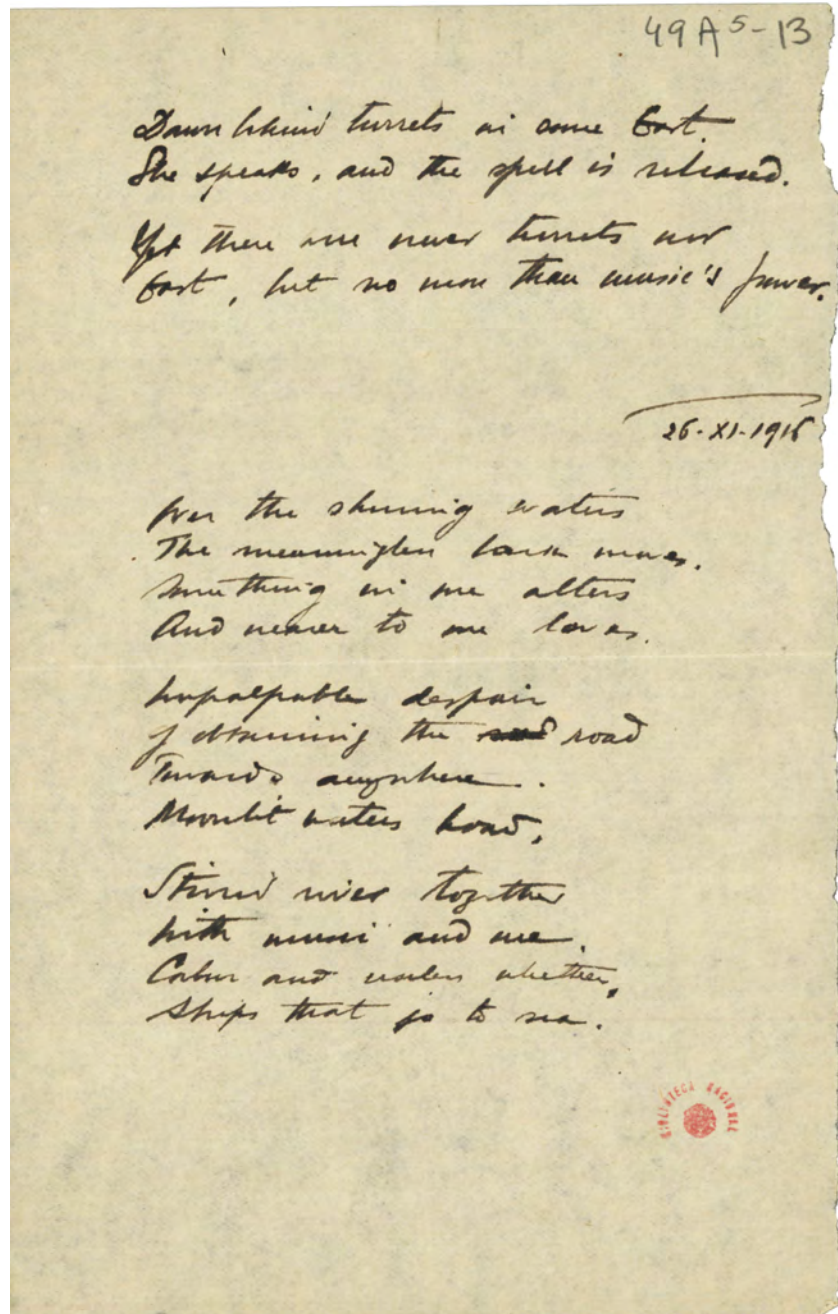 49A5-13
Dawn behind turrets in some East.
She speaks, and the spell is released.
Yet there are never turrets nor
East, but no more than music's power.
26-XI-1916
Over the shining waters
The meaningless bark moves.
Something in me alters
And nearer to me loves.
Impalpable despair
Of obtaining the road
Towards anywhere.
Moonlit waters broad,
Stirred together
With music and me.
Colour and whether,
Ships that go to sea.
BIBLIOTECA NACIONAL